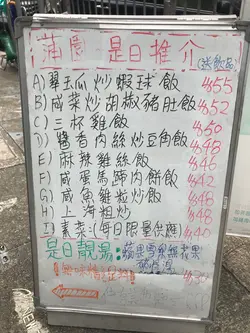 蒲園 是日推介
(送飲品)
A)翠玉瓜炒蝦球飯 $55
B)咸菜炒胡椒豬肚飯 $52
C)三杯雞飯 $50
D)醬香肉絲炒豆角飯 $48
E)麻辣雞絲飯 $46
F)咸蛋馬蹄肉餅飯 $42
G)咸魚雞粒炒飯 $48
H)上海粗炒 $48
I)素菜:(每日限量供應) $40
是日靚湯:蘋果雪梨無花果